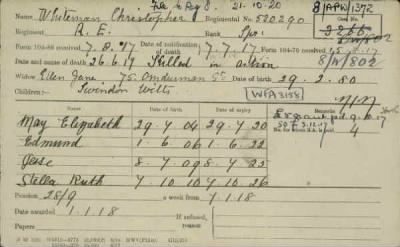 21-10-20 8/APW/1372
Name, Whiteman Christopher Regimental No. 520290
Regiment, R. E. Rank, Spr.
Form 104-88 received 7.8.17 Date of notification of death 7.7.17 Form 104-76 received
Date and name of death 26.6.17 Killed in action
Widow Ellen Jane 75. Omdurman St. Date of birth 29.2.80
Children:- Swindon Wilts WFA 3158
Name Date of birth Remarks
May Elizabeth 29.7.04 29.7.20
Edmund 1.6.06 1.6.22
Jesse 8.7.09 8.7.25
Stella Ruth 7.10.10 7.10.26
4
Pension 28/9 a week from 7.1.18
Date awarded 1.1.18 If refused, reason
Papers